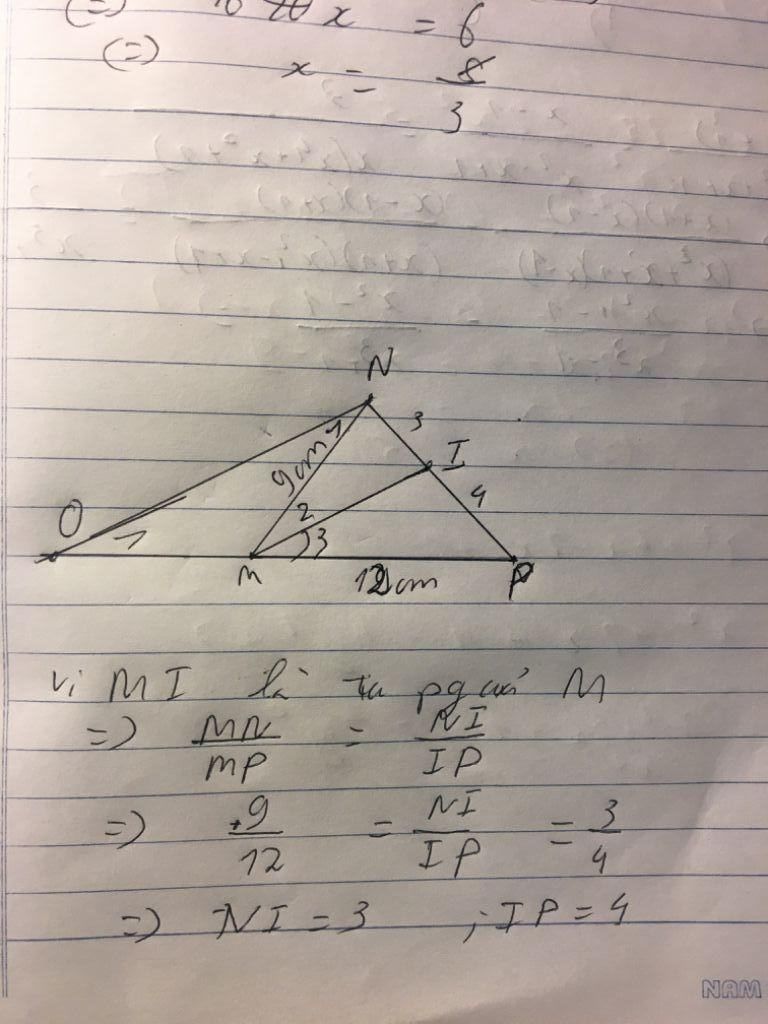 (=) x = 6
(=) x = 8/3
N
3
9cm 1
I
O
2
4
1
3
M
12cm
P
Vì MI là tia pg của M
=> MN/MP = NI/IP
=> 9/12 = NI/IP = 3/4
=> NI = 3 ; IP = 4
NAM